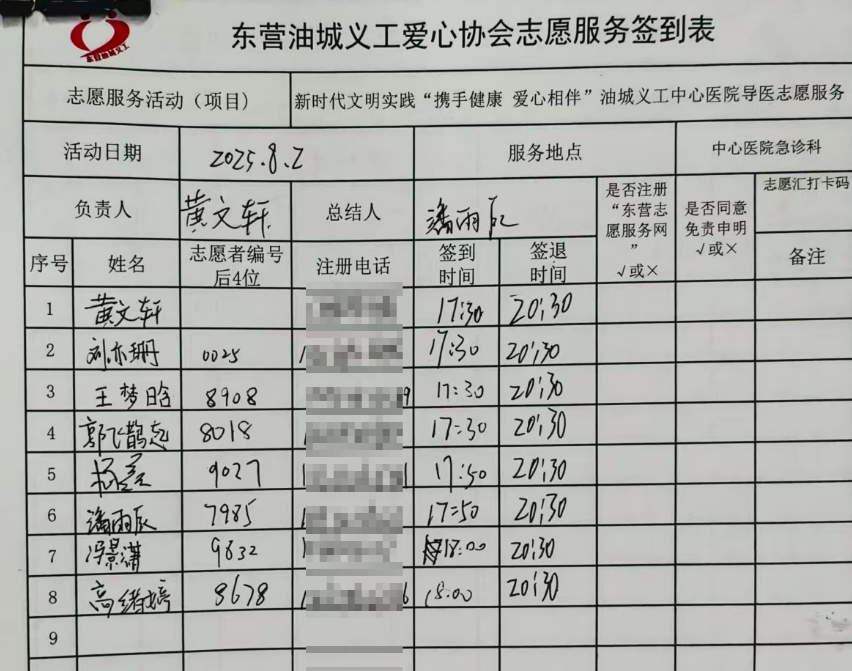 东营油城义工爱心协会志愿服务签到表
志愿服务活动（项目） 新时代文明实践“携手健康 爱心相伴”油城义工中心医院导医志愿服务
活动日期 2025.8.2 服务地点 中心医院急诊科
负责人 黄文轩 总结人 潘雨辰 是否注册“东营志愿服务网” √或× 是否同意免责申明 √或× 志愿汇打卡码
序号 姓名 志愿者编号后4位 注册电话 签到时间 签退时间 备注
1 黄文轩 17:30 20:30
2 刘亦珊 0025 17:30 20:30
3 王梦晗 8908 17:30 20:30
4 郭飞鹊起 8018 17:30 20:30
5 杨 9027 17:50 20:30
6 潘雨辰 7985 17:50 20:30
7 冯景潇 9832 18:00 20:30
8 高绪婷 8678 18:00 20:30
9